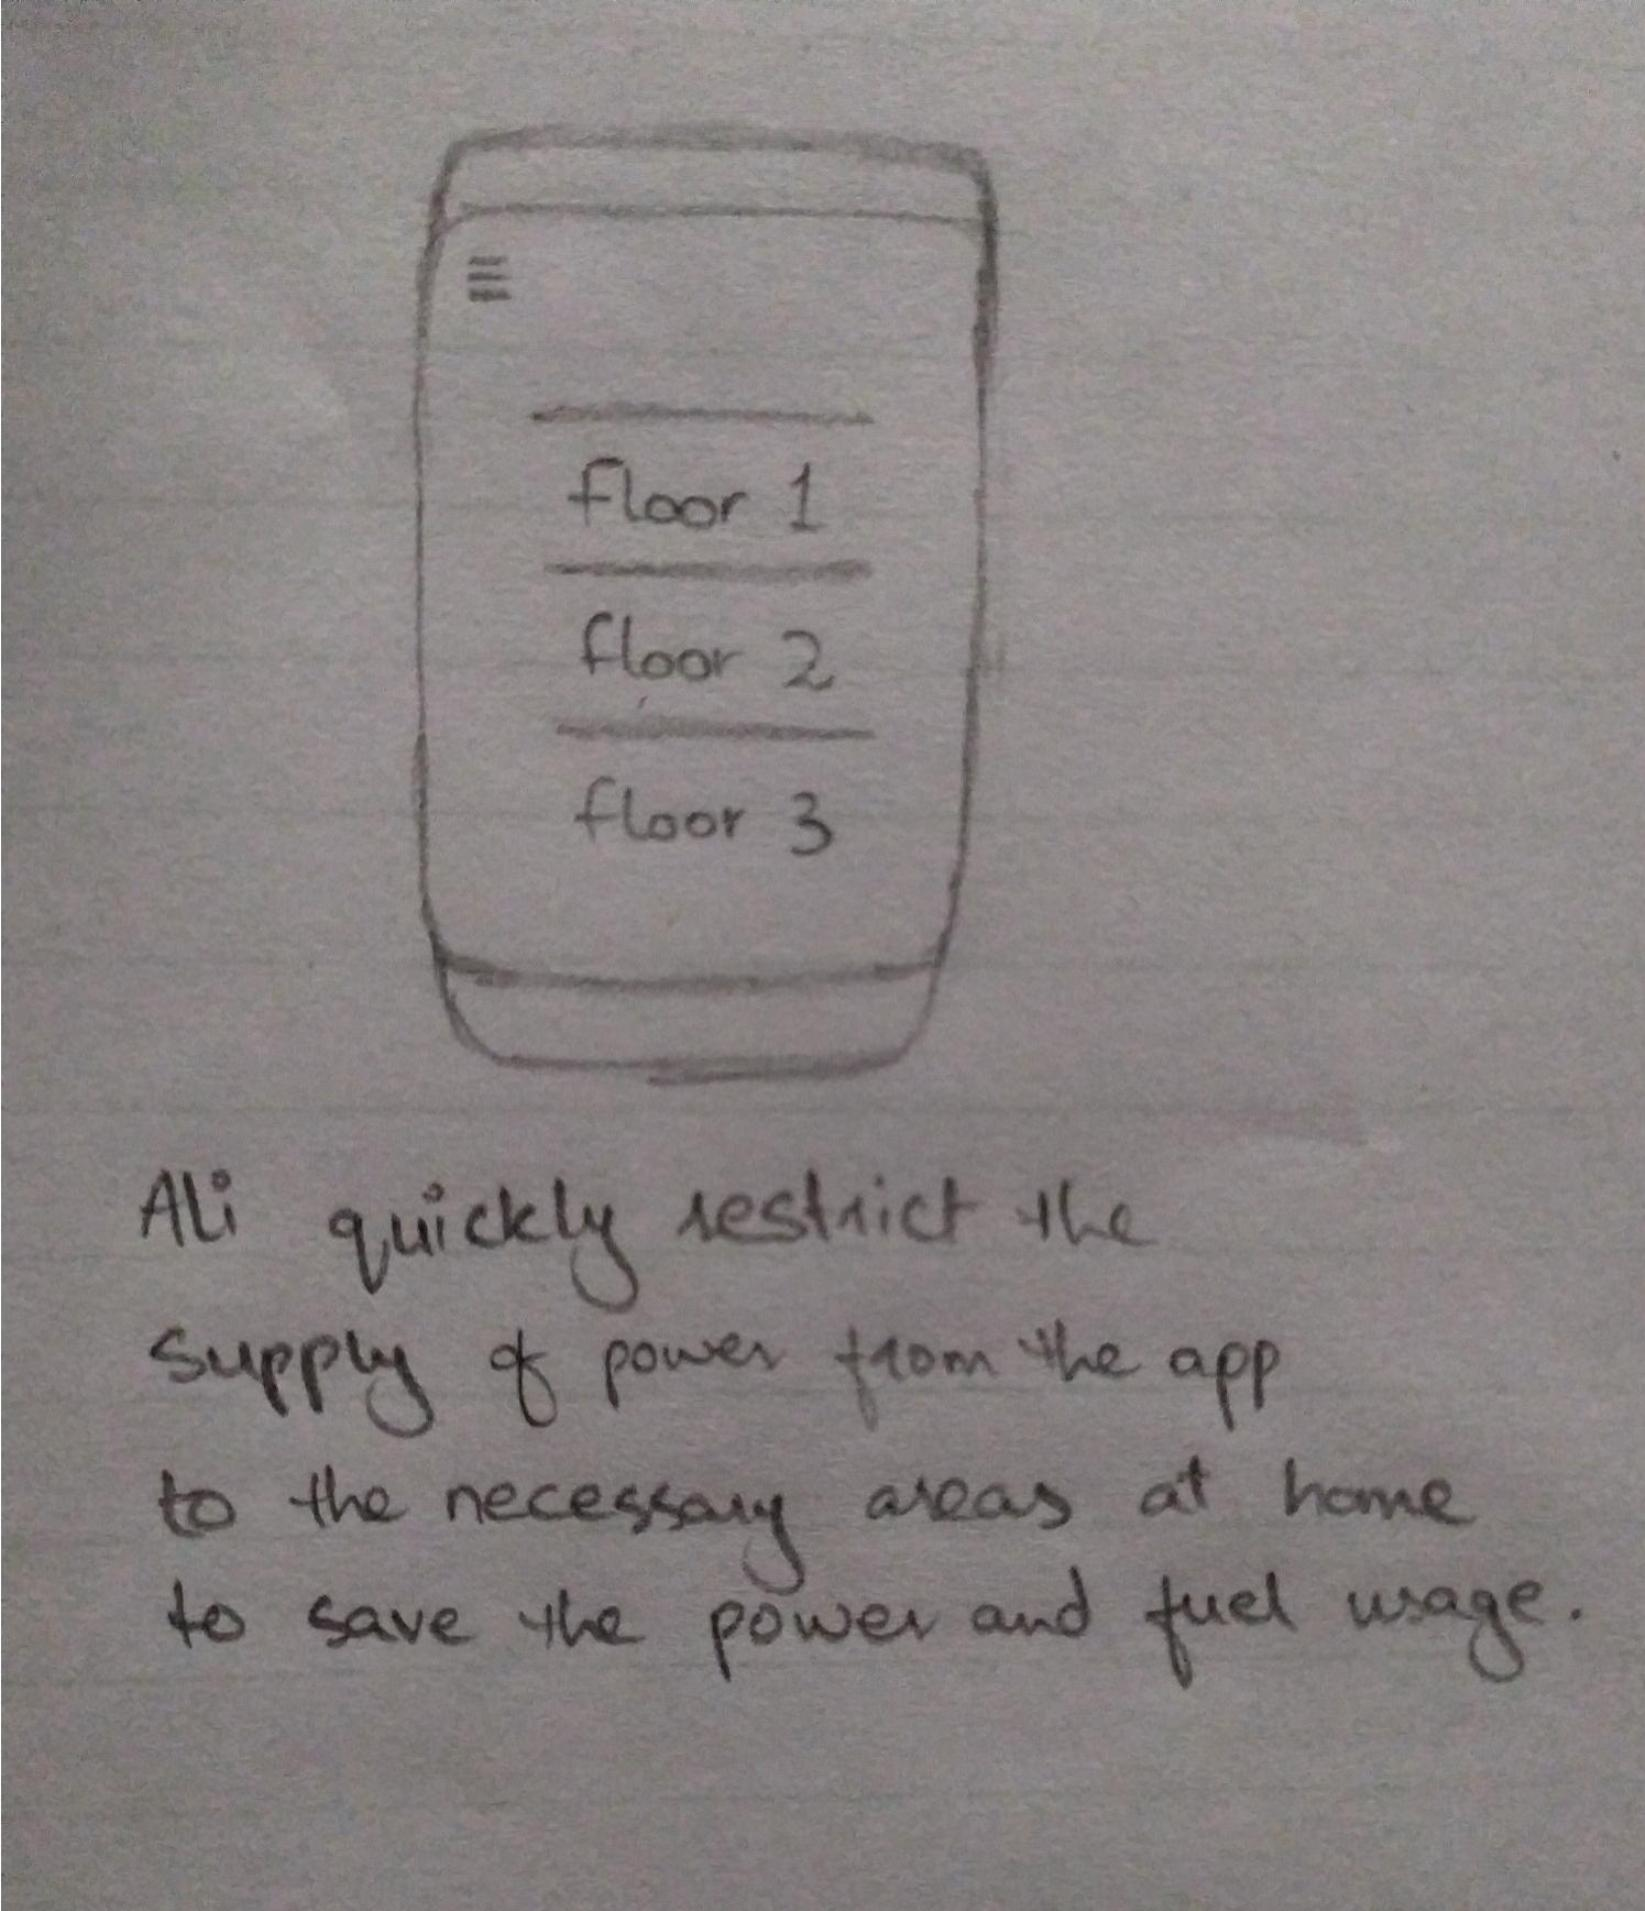 floor 1
floor 2
floor 3
Ali quickly restrict the
supply of power from the app
to the necessary areas at home
to save the power and fuel usage.